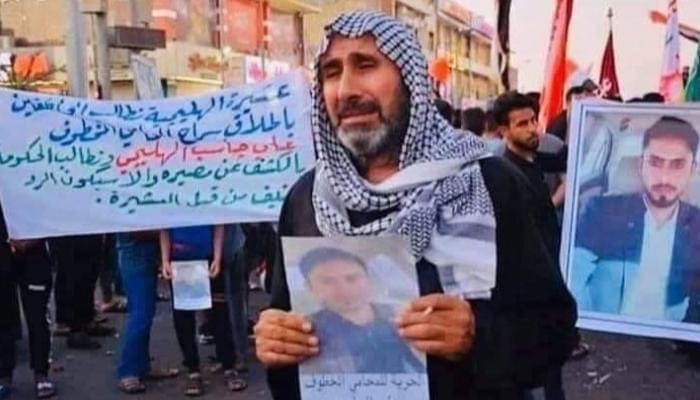 عشيرة الهليجية نطالب الخاطفين
باطلاق سراح المحامي المخطوف
علي جاسب الهليجي ونطالب الحكومة
بالكشف عن مصيره والا سيكون الرد
من قبل العشيرة .
الحرية للمحامي المخطوف